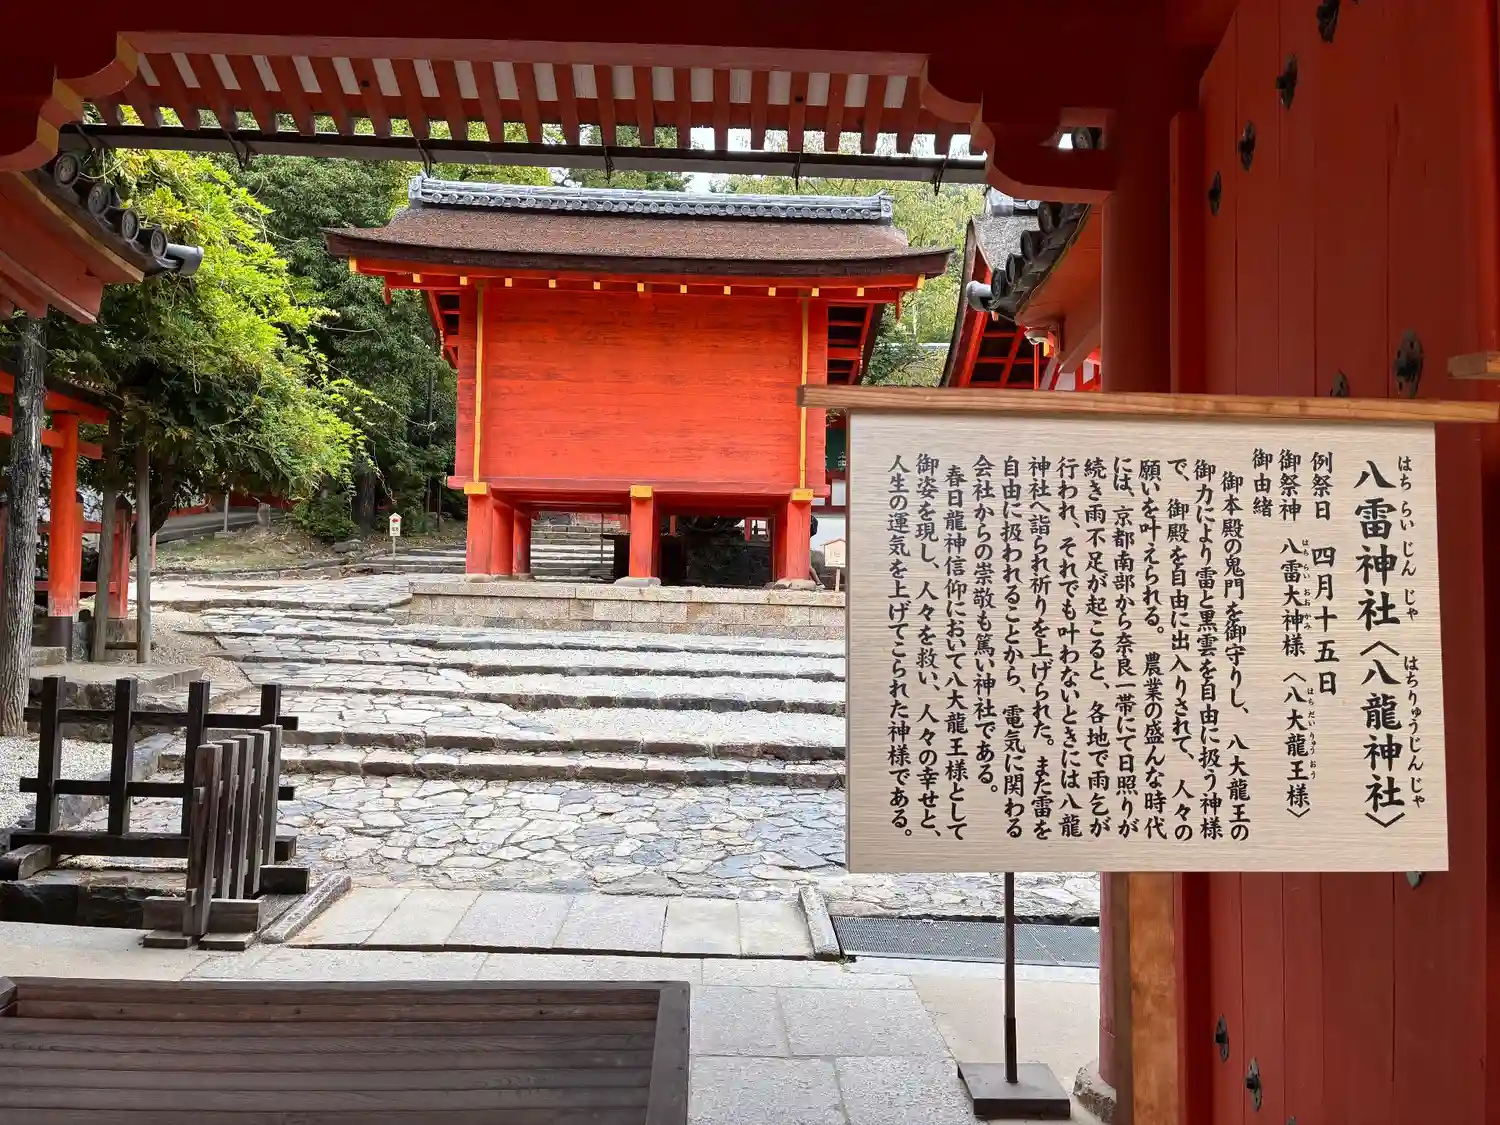 八雷神社〈八龍神社〉
はちらいじんじゃ
はちりゅうじんじゃ
例祭日 四月十五日
御祭神 八雷大神様〈八大龍王様〉
はちらいおおかみ
はちだいりゅうおう
御由緒
御本殿の鬼門を御守りし、八大龍王の
御力により雷と黒雲を自由に扱う神様
で、御殿を自由に出入りされて、人々の
願いを叶えられる。農業の盛んな時代
には、京都南部から奈良一帯にて日照りが
続き雨不足が起こると、各地で雨乞が
行われ、それでも叶わないときには八龍
神社へ詣られ祈りを上げられた。また雷を
自由に扱われることから、電気に関わる
会社からの崇敬も篤い神社である。
春日龍神信仰において八大龍王様として
御姿を現し、人々を救い、人々の幸せと、
人生の運気を上げてこられた神様である。